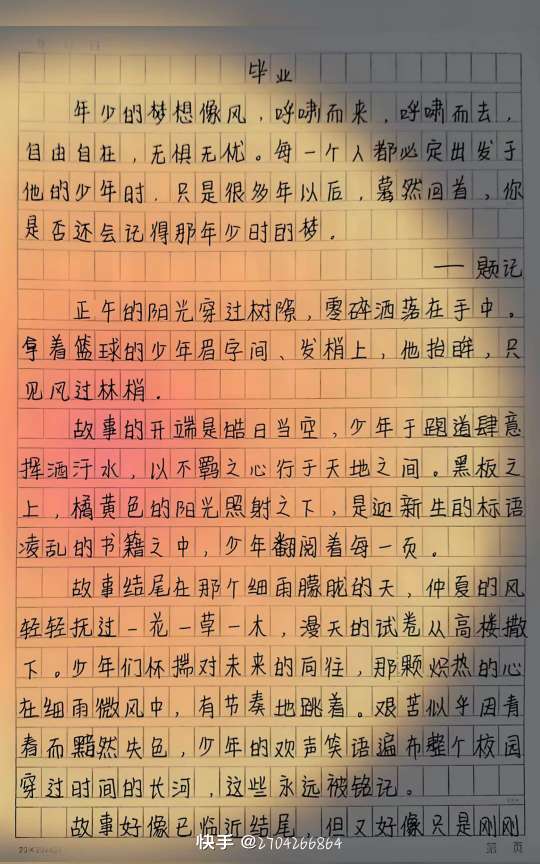 毕业
年少的梦想像风，呼啸而来，呼啸而去，
自由自在，无惧无忧。每一个人都必定出发于
他的少年时，只是很多年以后，蓦然回首，你
是否还会记得那年少时的梦。
——题记
正午的阳光穿过树隙，零碎洒落在手中。
拿着篮球的少年眉宇间、发梢上，他抬眸，只
见风过林梢．
故事的开端是皓日当空，少年于跑道肆意
挥洒汗水，以不羁之心行于天地之间。黑板之
上，橘黄色的阳光照射之下，是迎新生的标语
凌乱的书籍之中，少年翻阅着每一页。
故事结尾在那个细雨朦胧的天，仲夏的风
轻轻抚过一花一草一木，漫天的试卷从高楼撒
下。少年们怀揣对未来的向往，那颗炽热的心
在细雨微风中，有节奏地跳着。艰苦似乎因青
春而黯然失色，少年的欢声笑语遍布整个校园
穿过时间的长河，这些永远被铭记。
故事好像已临近结尾，但又好像只是刚刚
快手 @2704266864
第 页